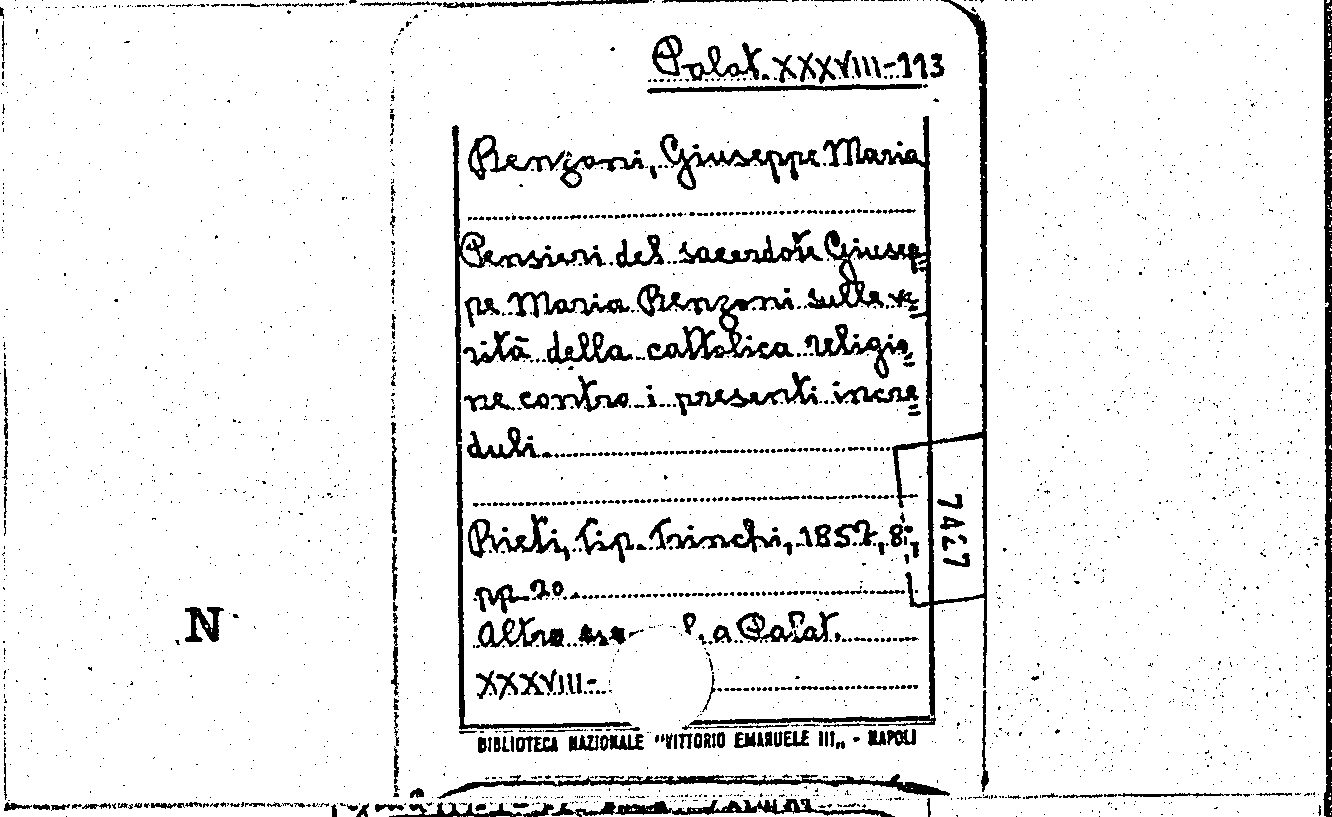 Palat. XXXVIII-113
Renzoni, Giuseppe Maria
Pensieri del sacerdote Giusep=
pe Maria Renzoni sulle ve=
rità della cattolica religio=
ne contro i presenti incre=
duli.
Rieti, Tip. Trinchi, 1857, 8°,
pp. 20.
Altro a Palat.
XXXVIII-
7427
N
BIBLIOTECA NAZIONALE "VITTORIO EMANUELE III„ - NAPOLI